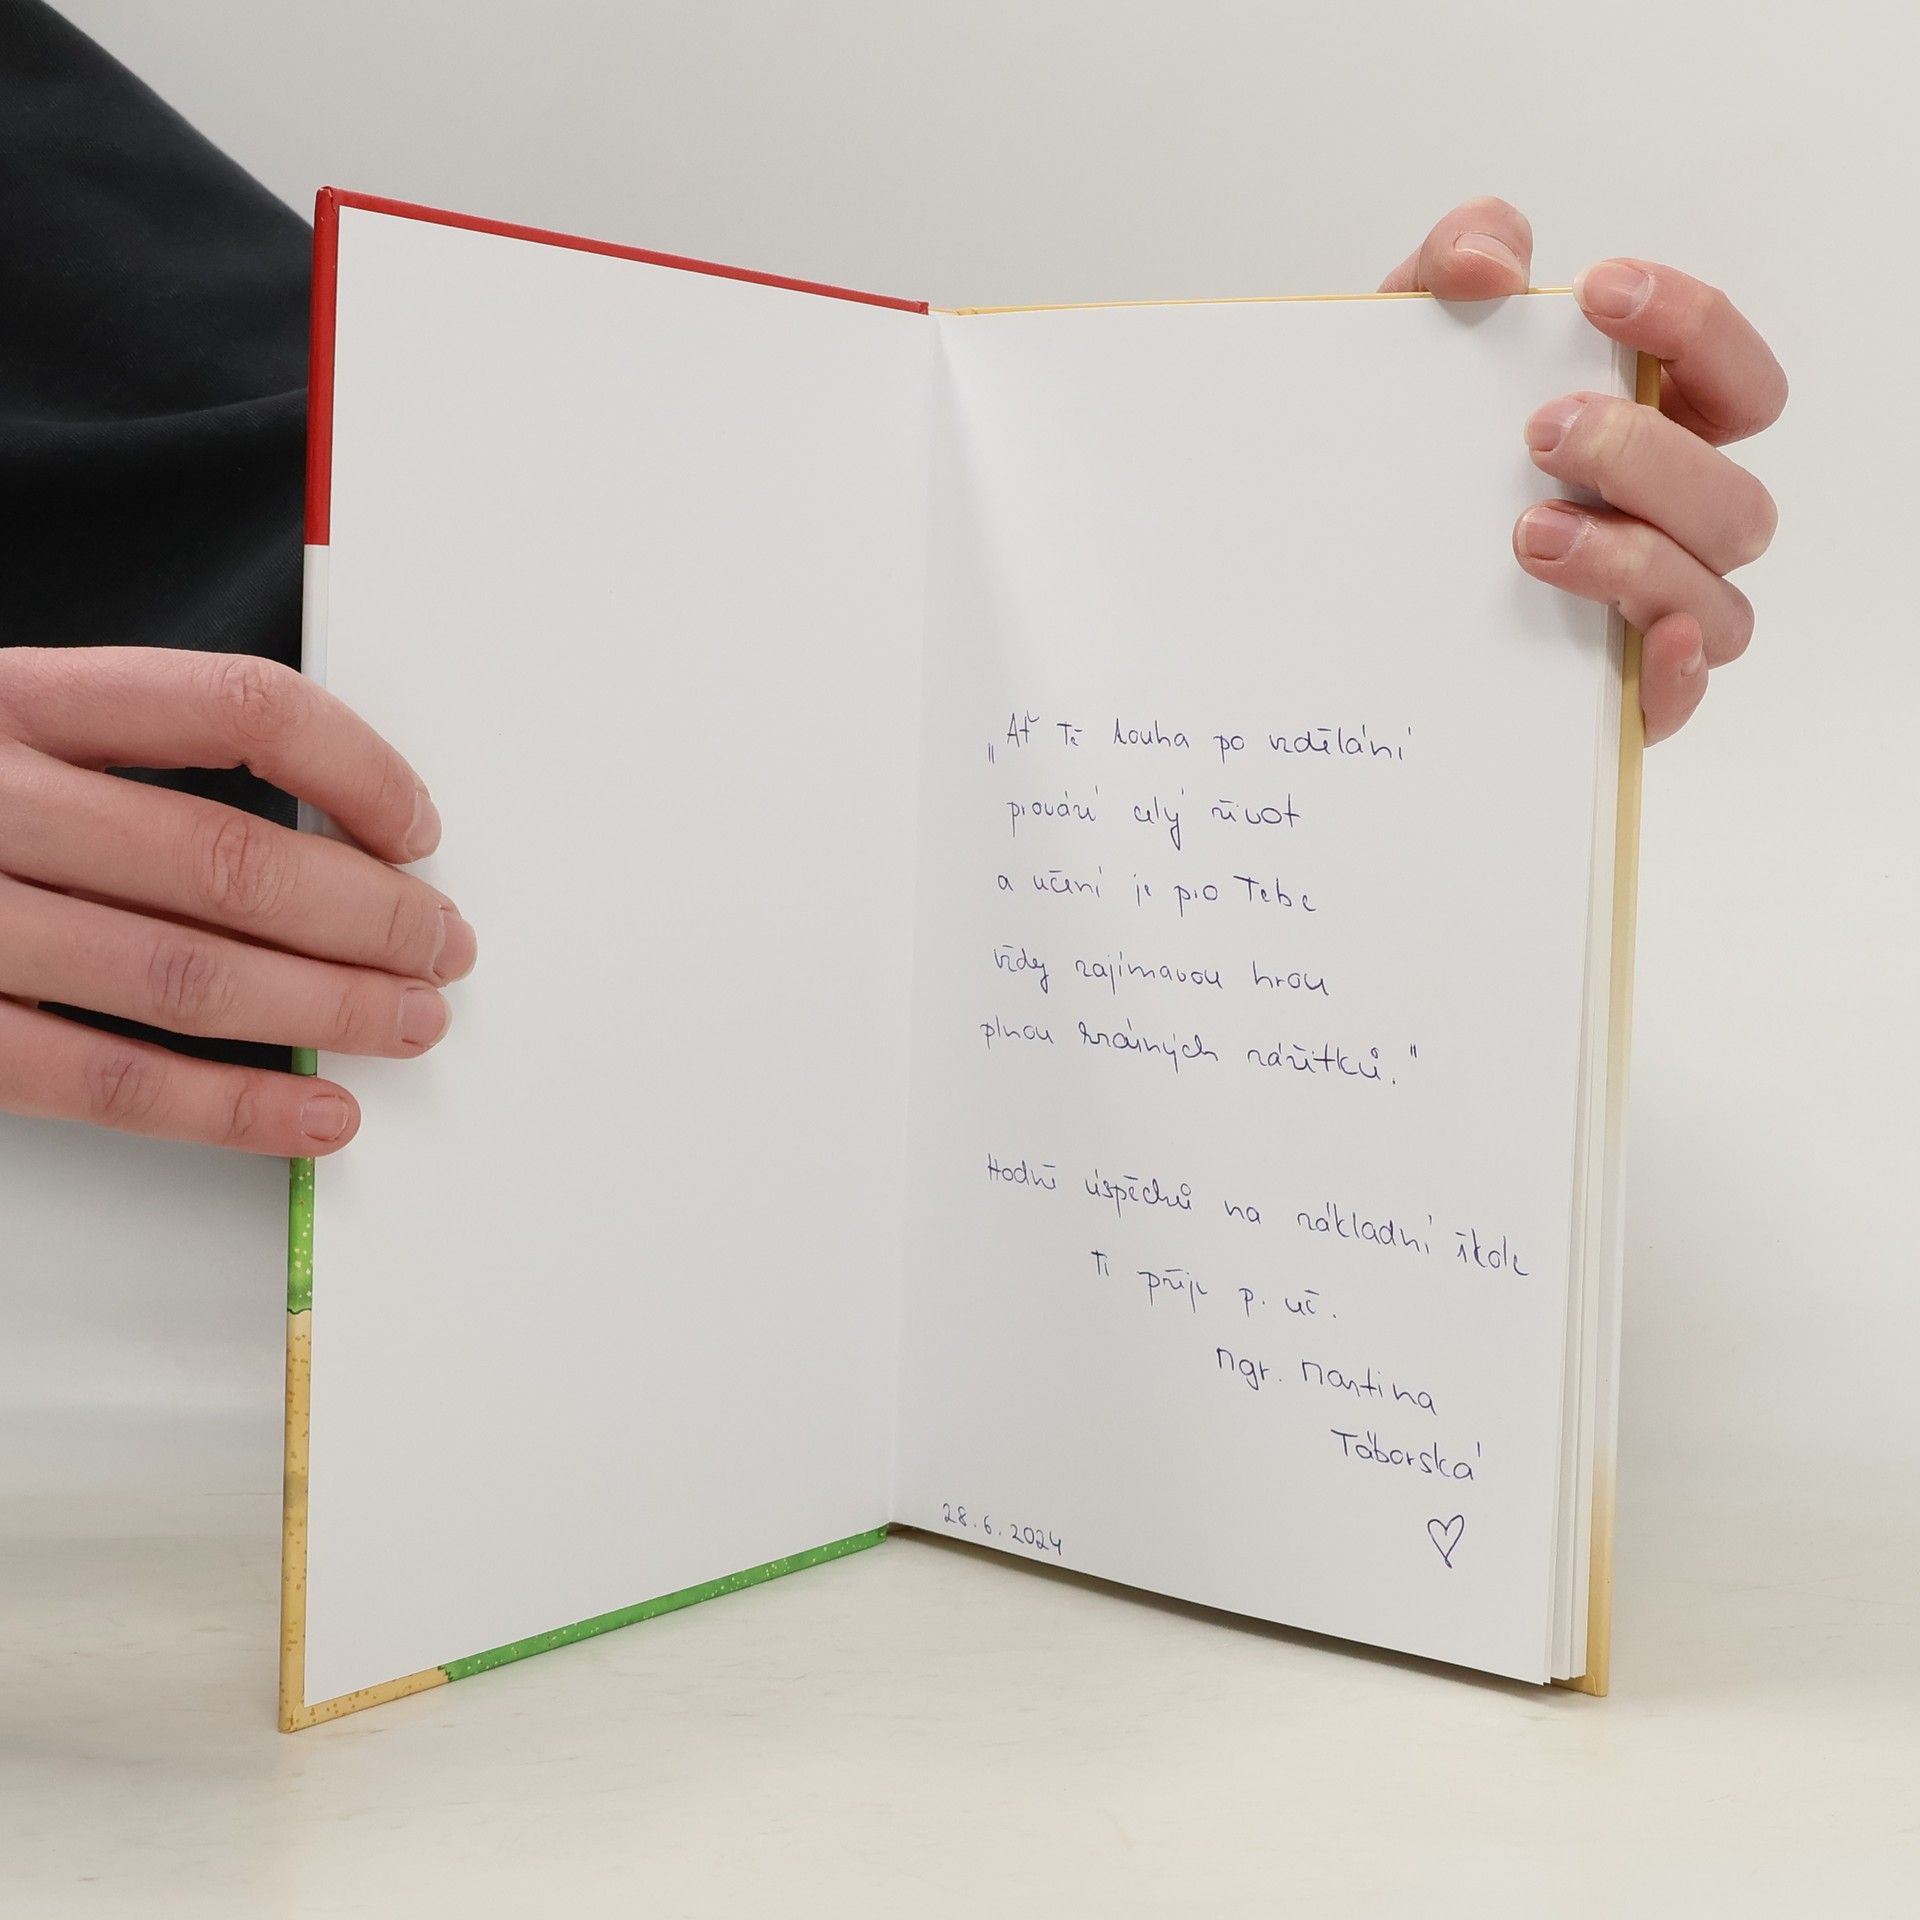 „Ať Tě touha po vzdělání
provází celý život
a učení je pro Tebe
vždy zajímavou hrou
plnou krásných zážitků."
Hodně úspěchů na základní škole
Ti přeje p. uč.
Mgr. Martina
Táborská
28.6.2024